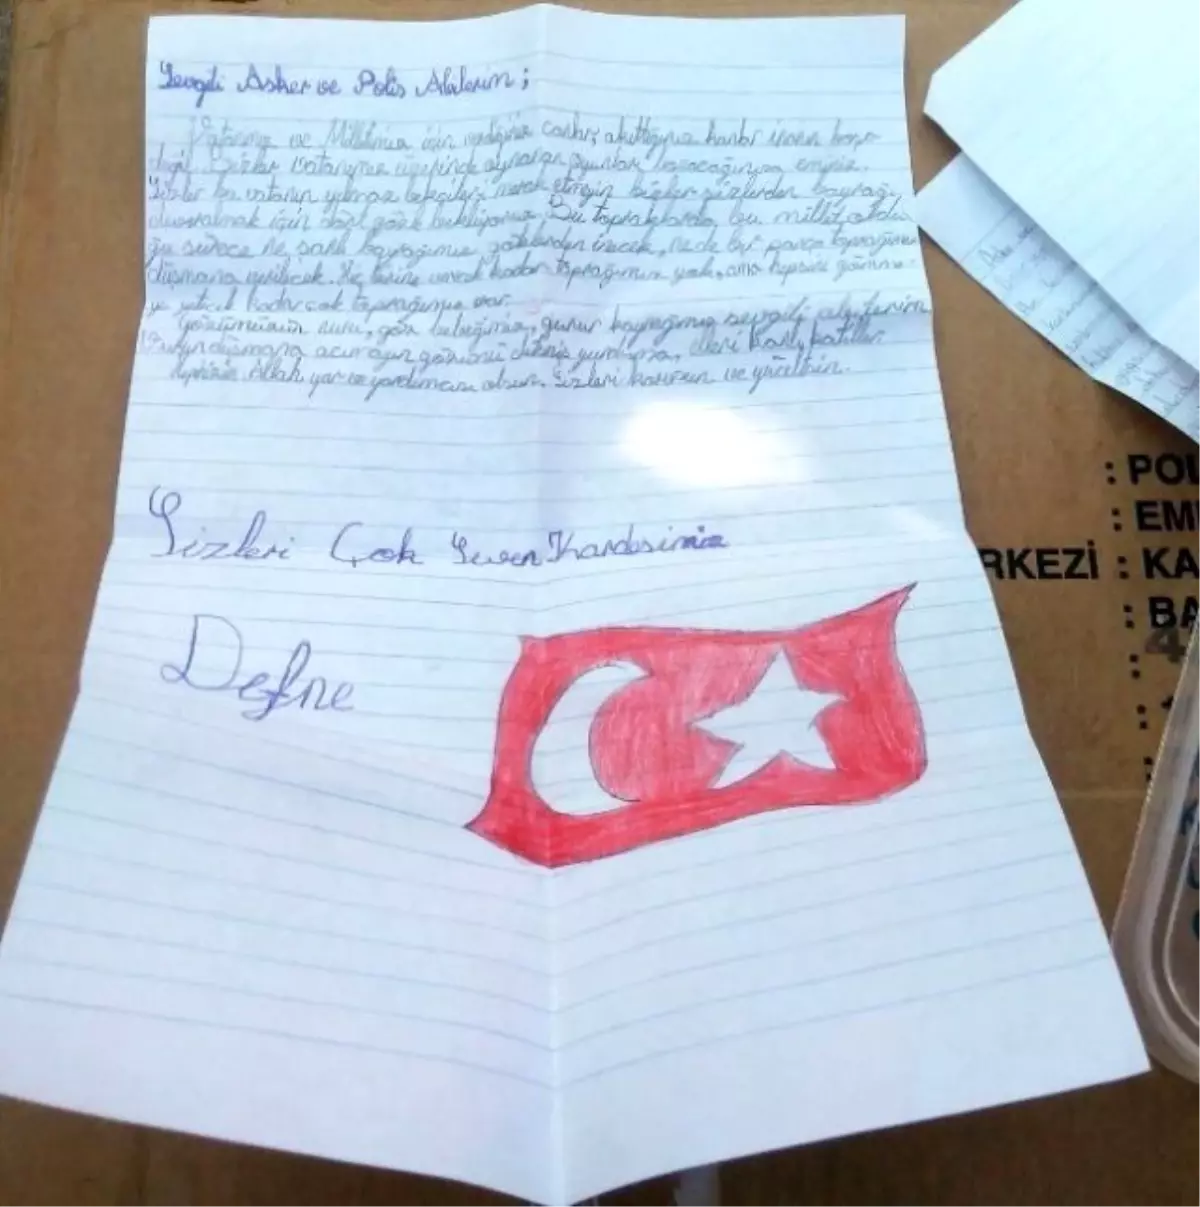 Sevgili Asker ve Polis Abilerim;
Vatanımız ve Milletimiz için verdiğiniz canlar, akıttığınız kanlar
değil. Sizler vatanımız üzerinde oynanan oyunları bozacağınıza eminiz.
Sizler bu vatanın yılmaz bekçileri merak etmeyin bizler sizlerden bayrağı
devralmak için dört gözle bekliyoruz. Bu topraklarda, bu millet oldu
ğu sürece ne şanlı bayrağımız göklerden inecek, ne de bir parça toprağımız
düşmana verilecek. Hiç birine verecek kadar toprağımız yok, ama hepsini gömme
ye yetecek kadar çok toprağımız var.
Gözümüzün nuru, göz bebeğimiz, gurur bayrağımız sevgili abilerim
düşmana acımayın gözünü dikmiş yurdumuza, eleri kanlı katiller
Allah yar ve yardımcınız olsun. Sizleri korusun ve yüceltsin.
Sizleri Çok Seven Kardeşiniz
Defne
: POL
: EM
RKEZİ : KA
: BA